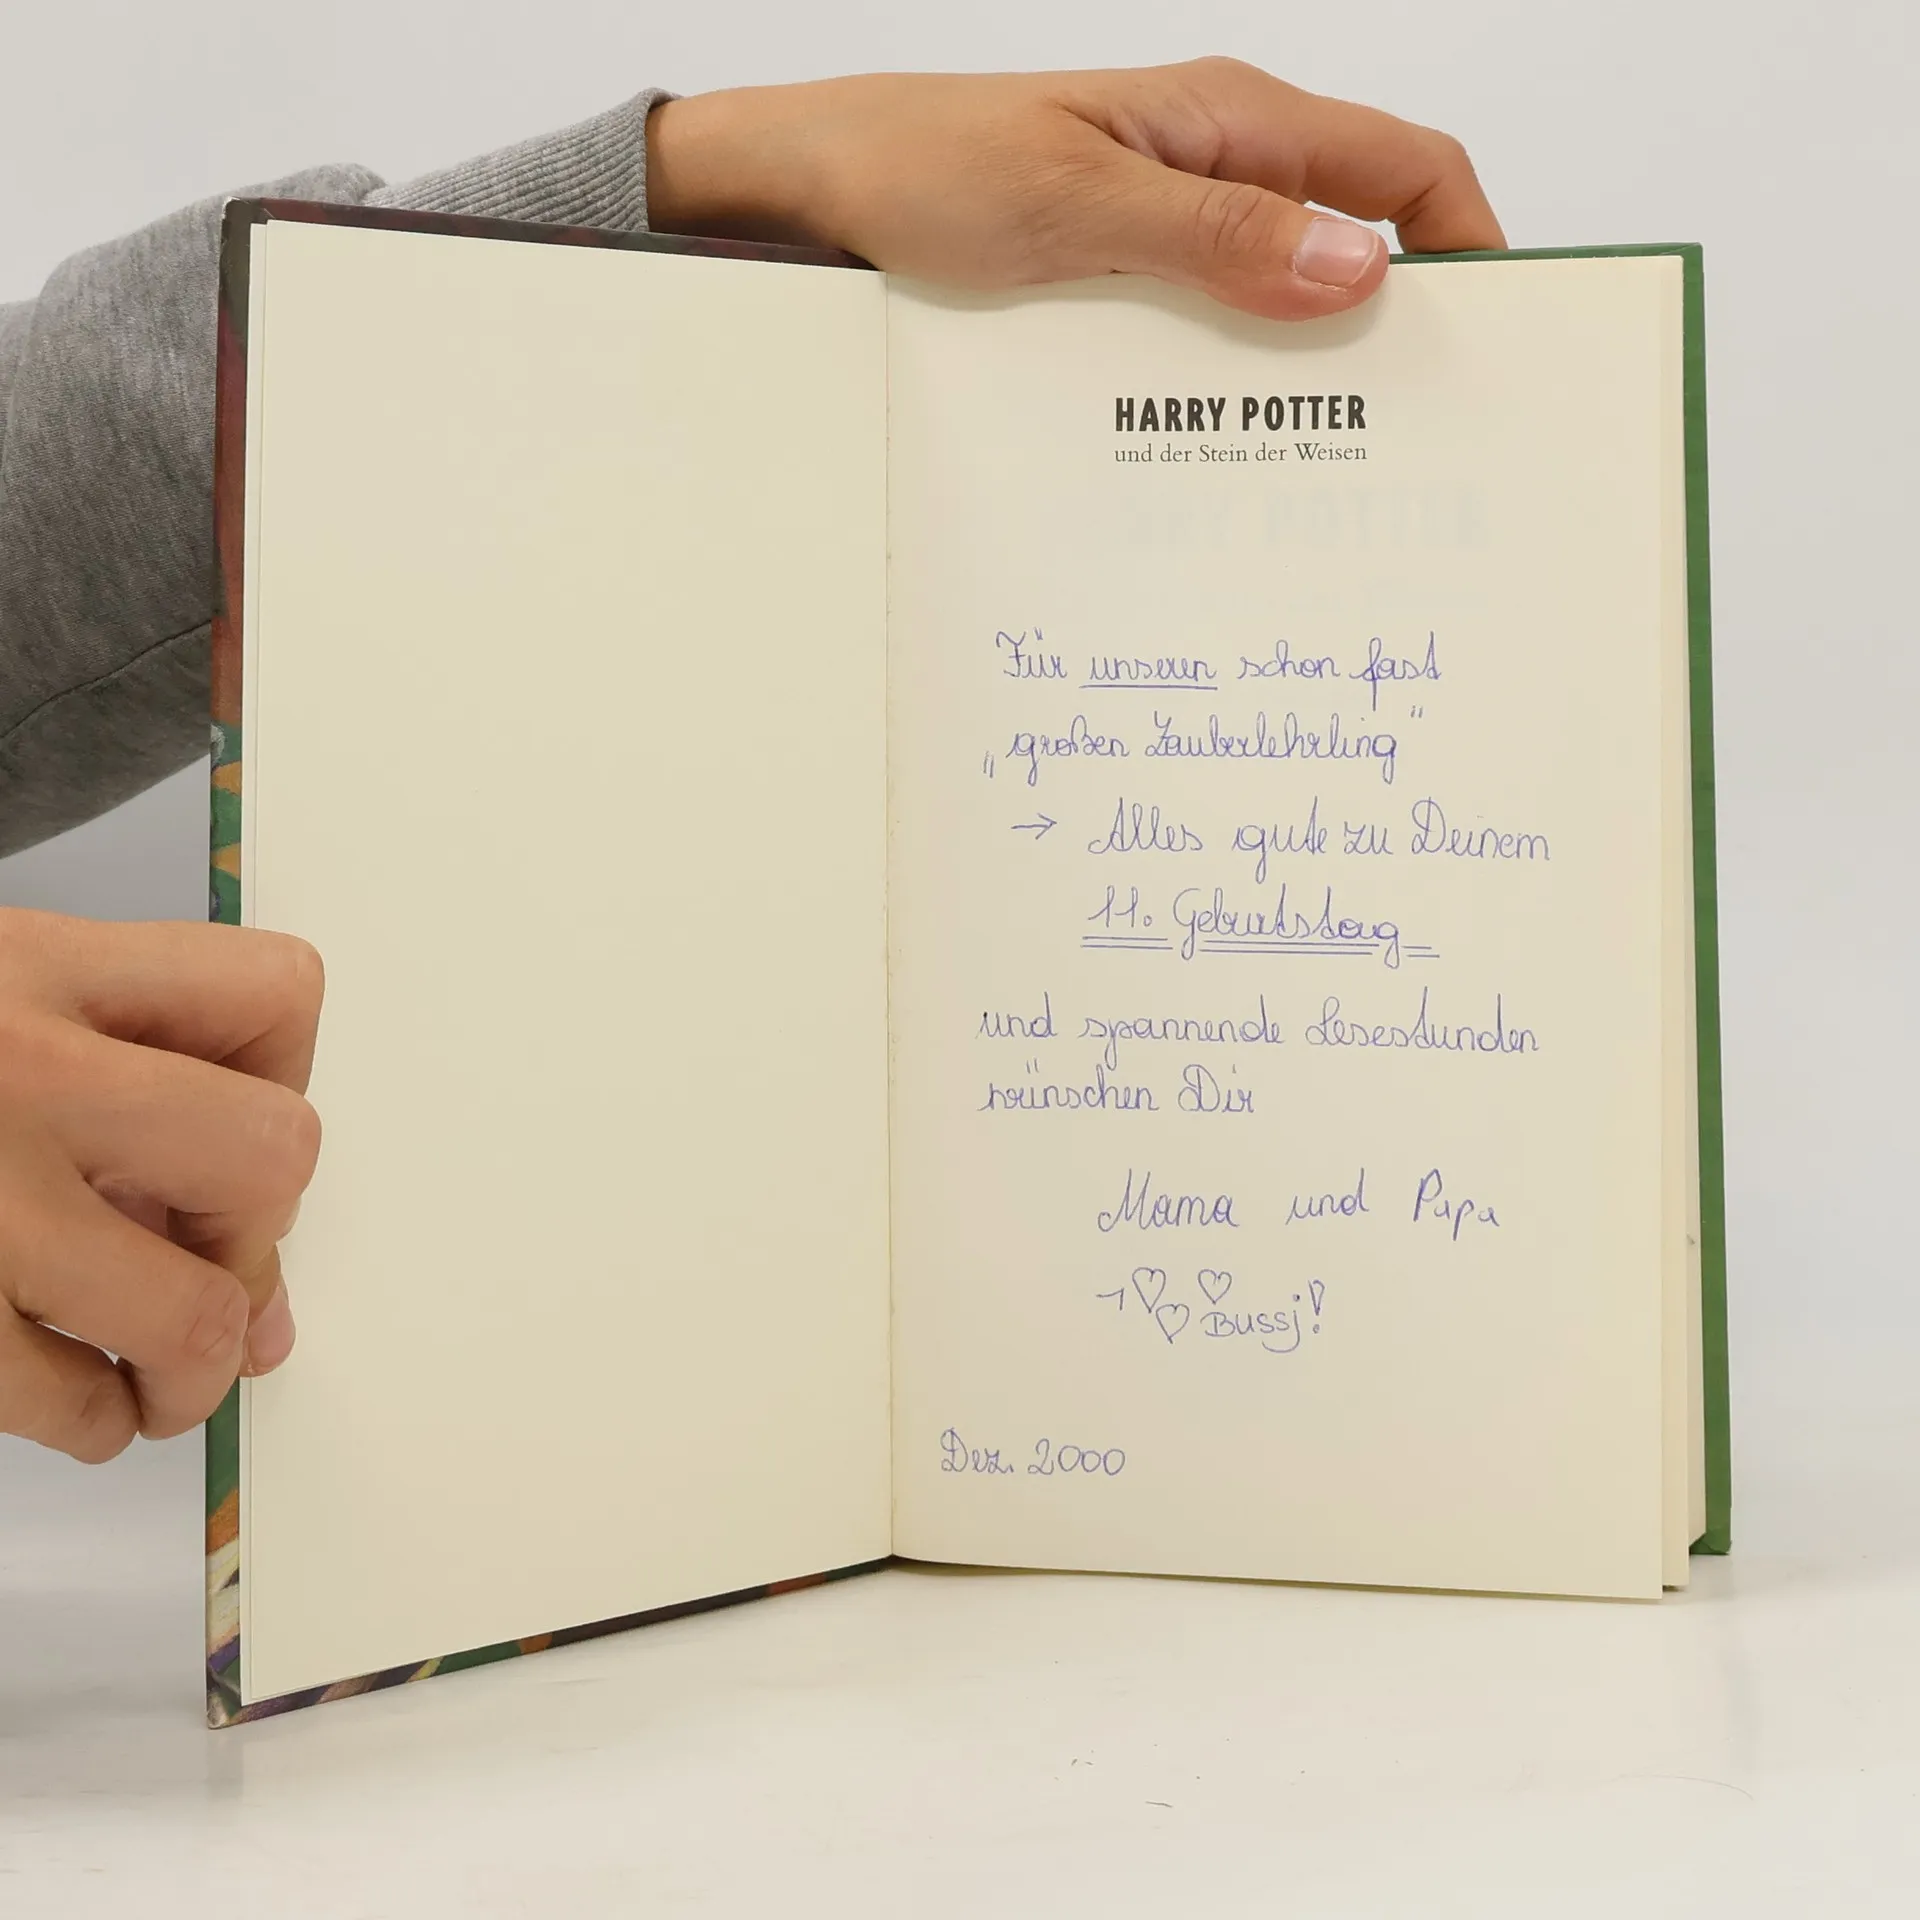 HARRY POTTER
und der Stein der Weisen
Für unseren schon fast
„großen Zauberlehrling"
→ Alles gute zu Deinem
11. Geburtstag
und spannende Lesestunden
wünschen Dir
Mama und Papa
Bussj!
Dez. 2000